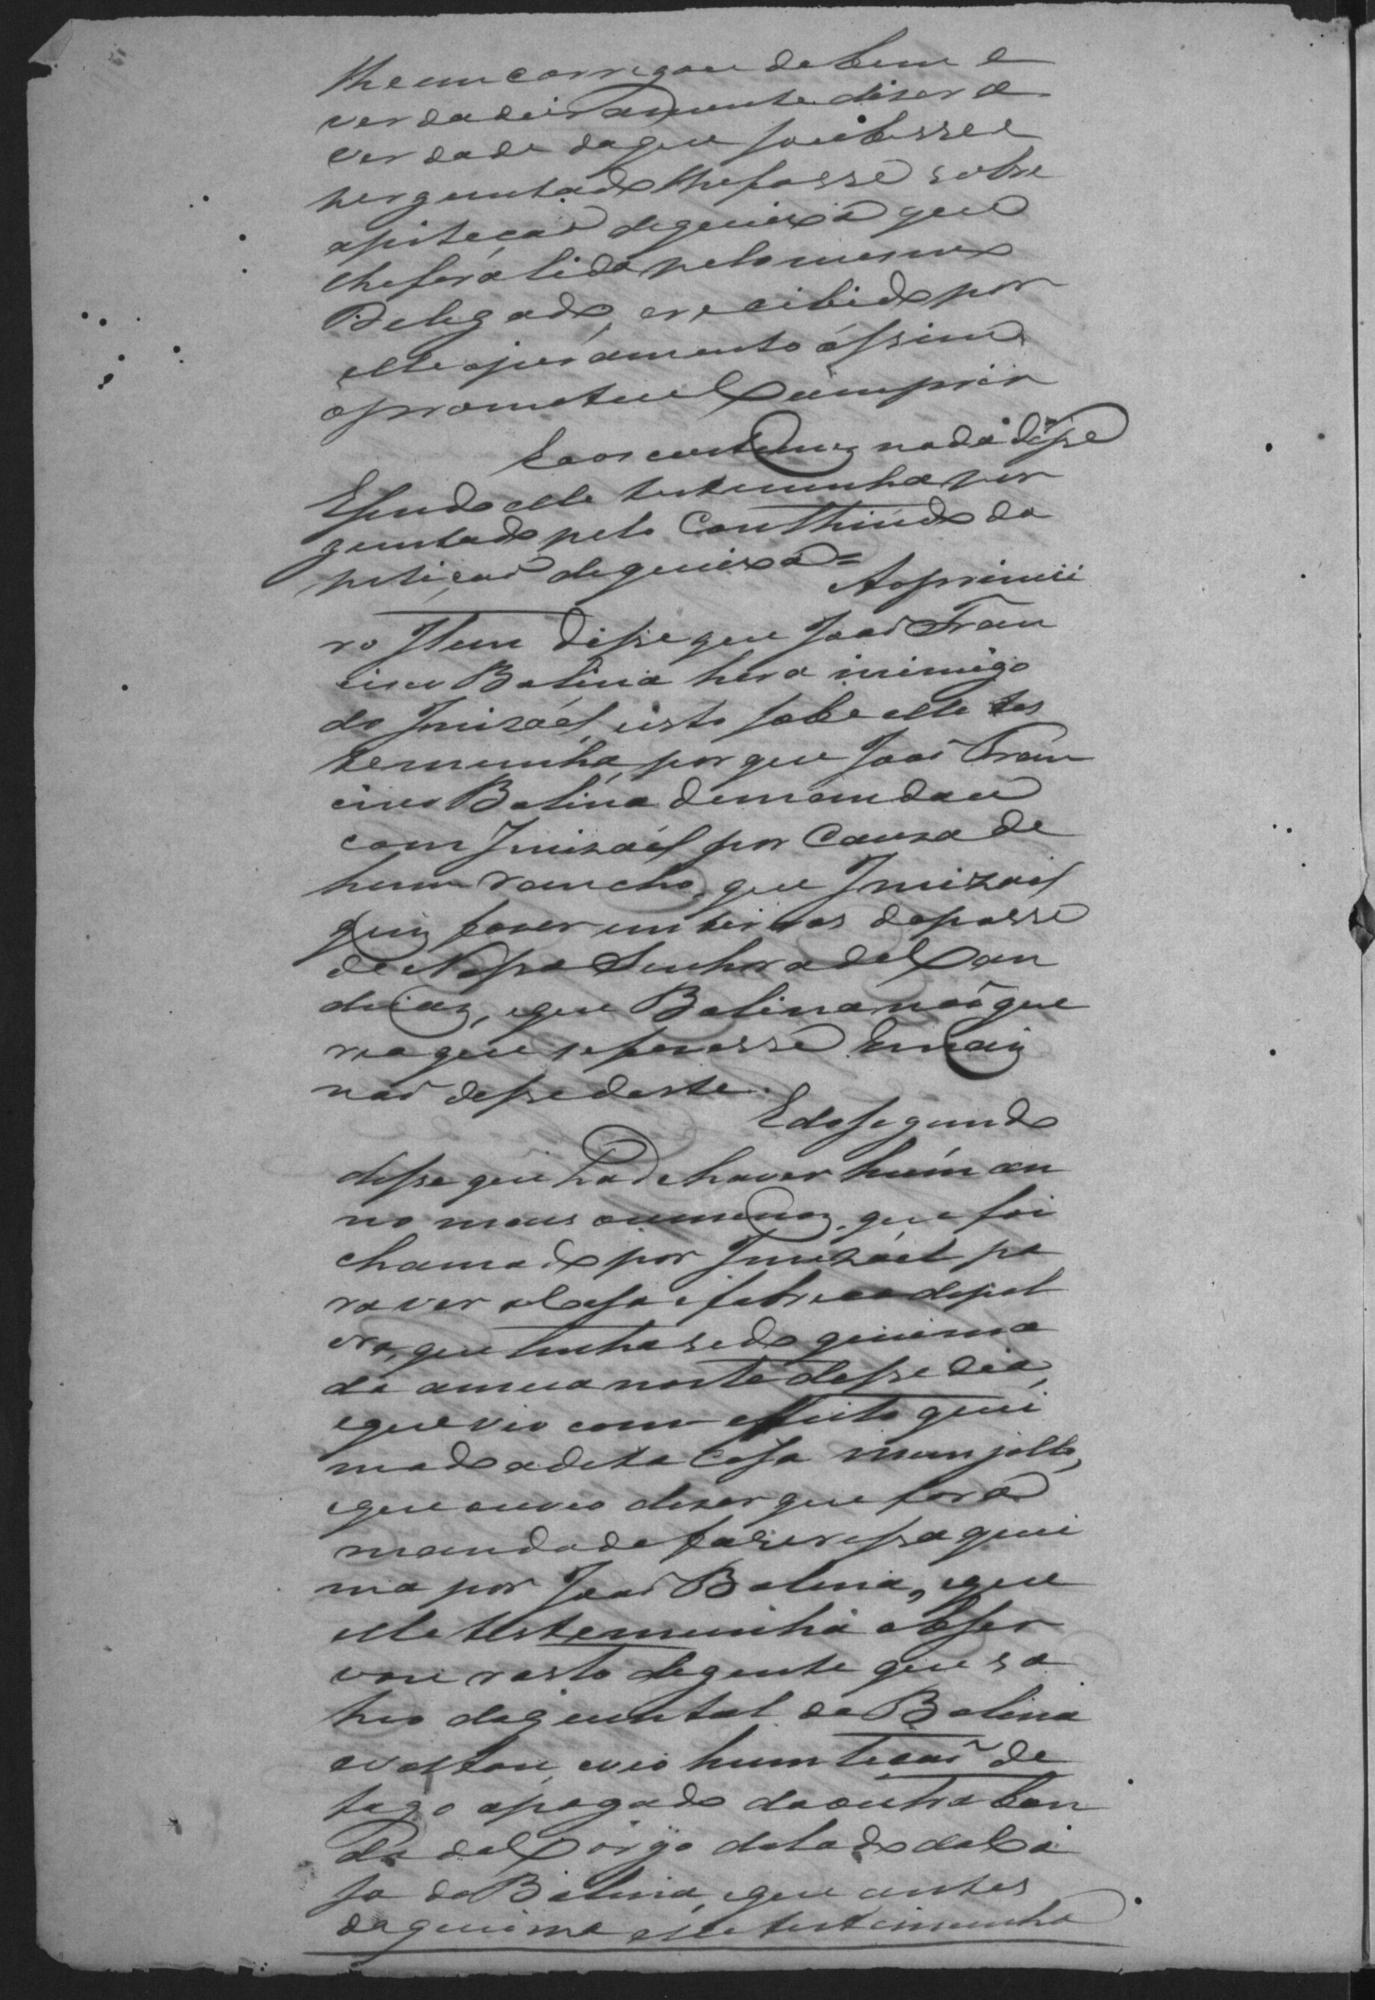 lhe emcarregou de bem e
verdadeiramente diser a
verdade do que soubesse e
perguntado lhe fosse sobre
apitição de queixa que
lhe fora lida pelo mesmo
Delegado, e recibido por
elle ojuramento assim
oprometeu Cumprir
Eaos custumes nada disse
Esendo elle testemunha per
guntado pelo Conthiudo da
petiçaõ de queixa =
Aoprimei
ro Item disse que Joaõ Fran
cisco Balina hera inimigo
do Imizaél, isto sabe elle tes
temunha, por que Joaõ Fran
cisco Balina demandou
com Imizaél por Cauza de
hum rancho, que Imizael
quiz fazer em terras daposse
de Nossa Senhora da Can
deias, eque Balina naõ que
ria que sefizesse Emais
naõ disse deste.
Edosegundo
disse que hade haver húm an
no mais oumenos, que foi
chamado por Imizaél pa
raver a Casa e fabrica depol
vra, que tinha sido queima
da ameia noite desse dia,
eque vio com effeito quei
mado adita Casa monjollo,
eque ouvio diser que fora
mandado faser essa quei
ma por Joaõ Balina, eque
elle testemunha obser
vou rasto de gente que sa
hio do quintal de Balina
evoltou, evio hum ticaõ de
fogo apagado daoutra ban
da do Corgo dolado da Ca
sa do Balina, eque antes
da queima elle testemunha